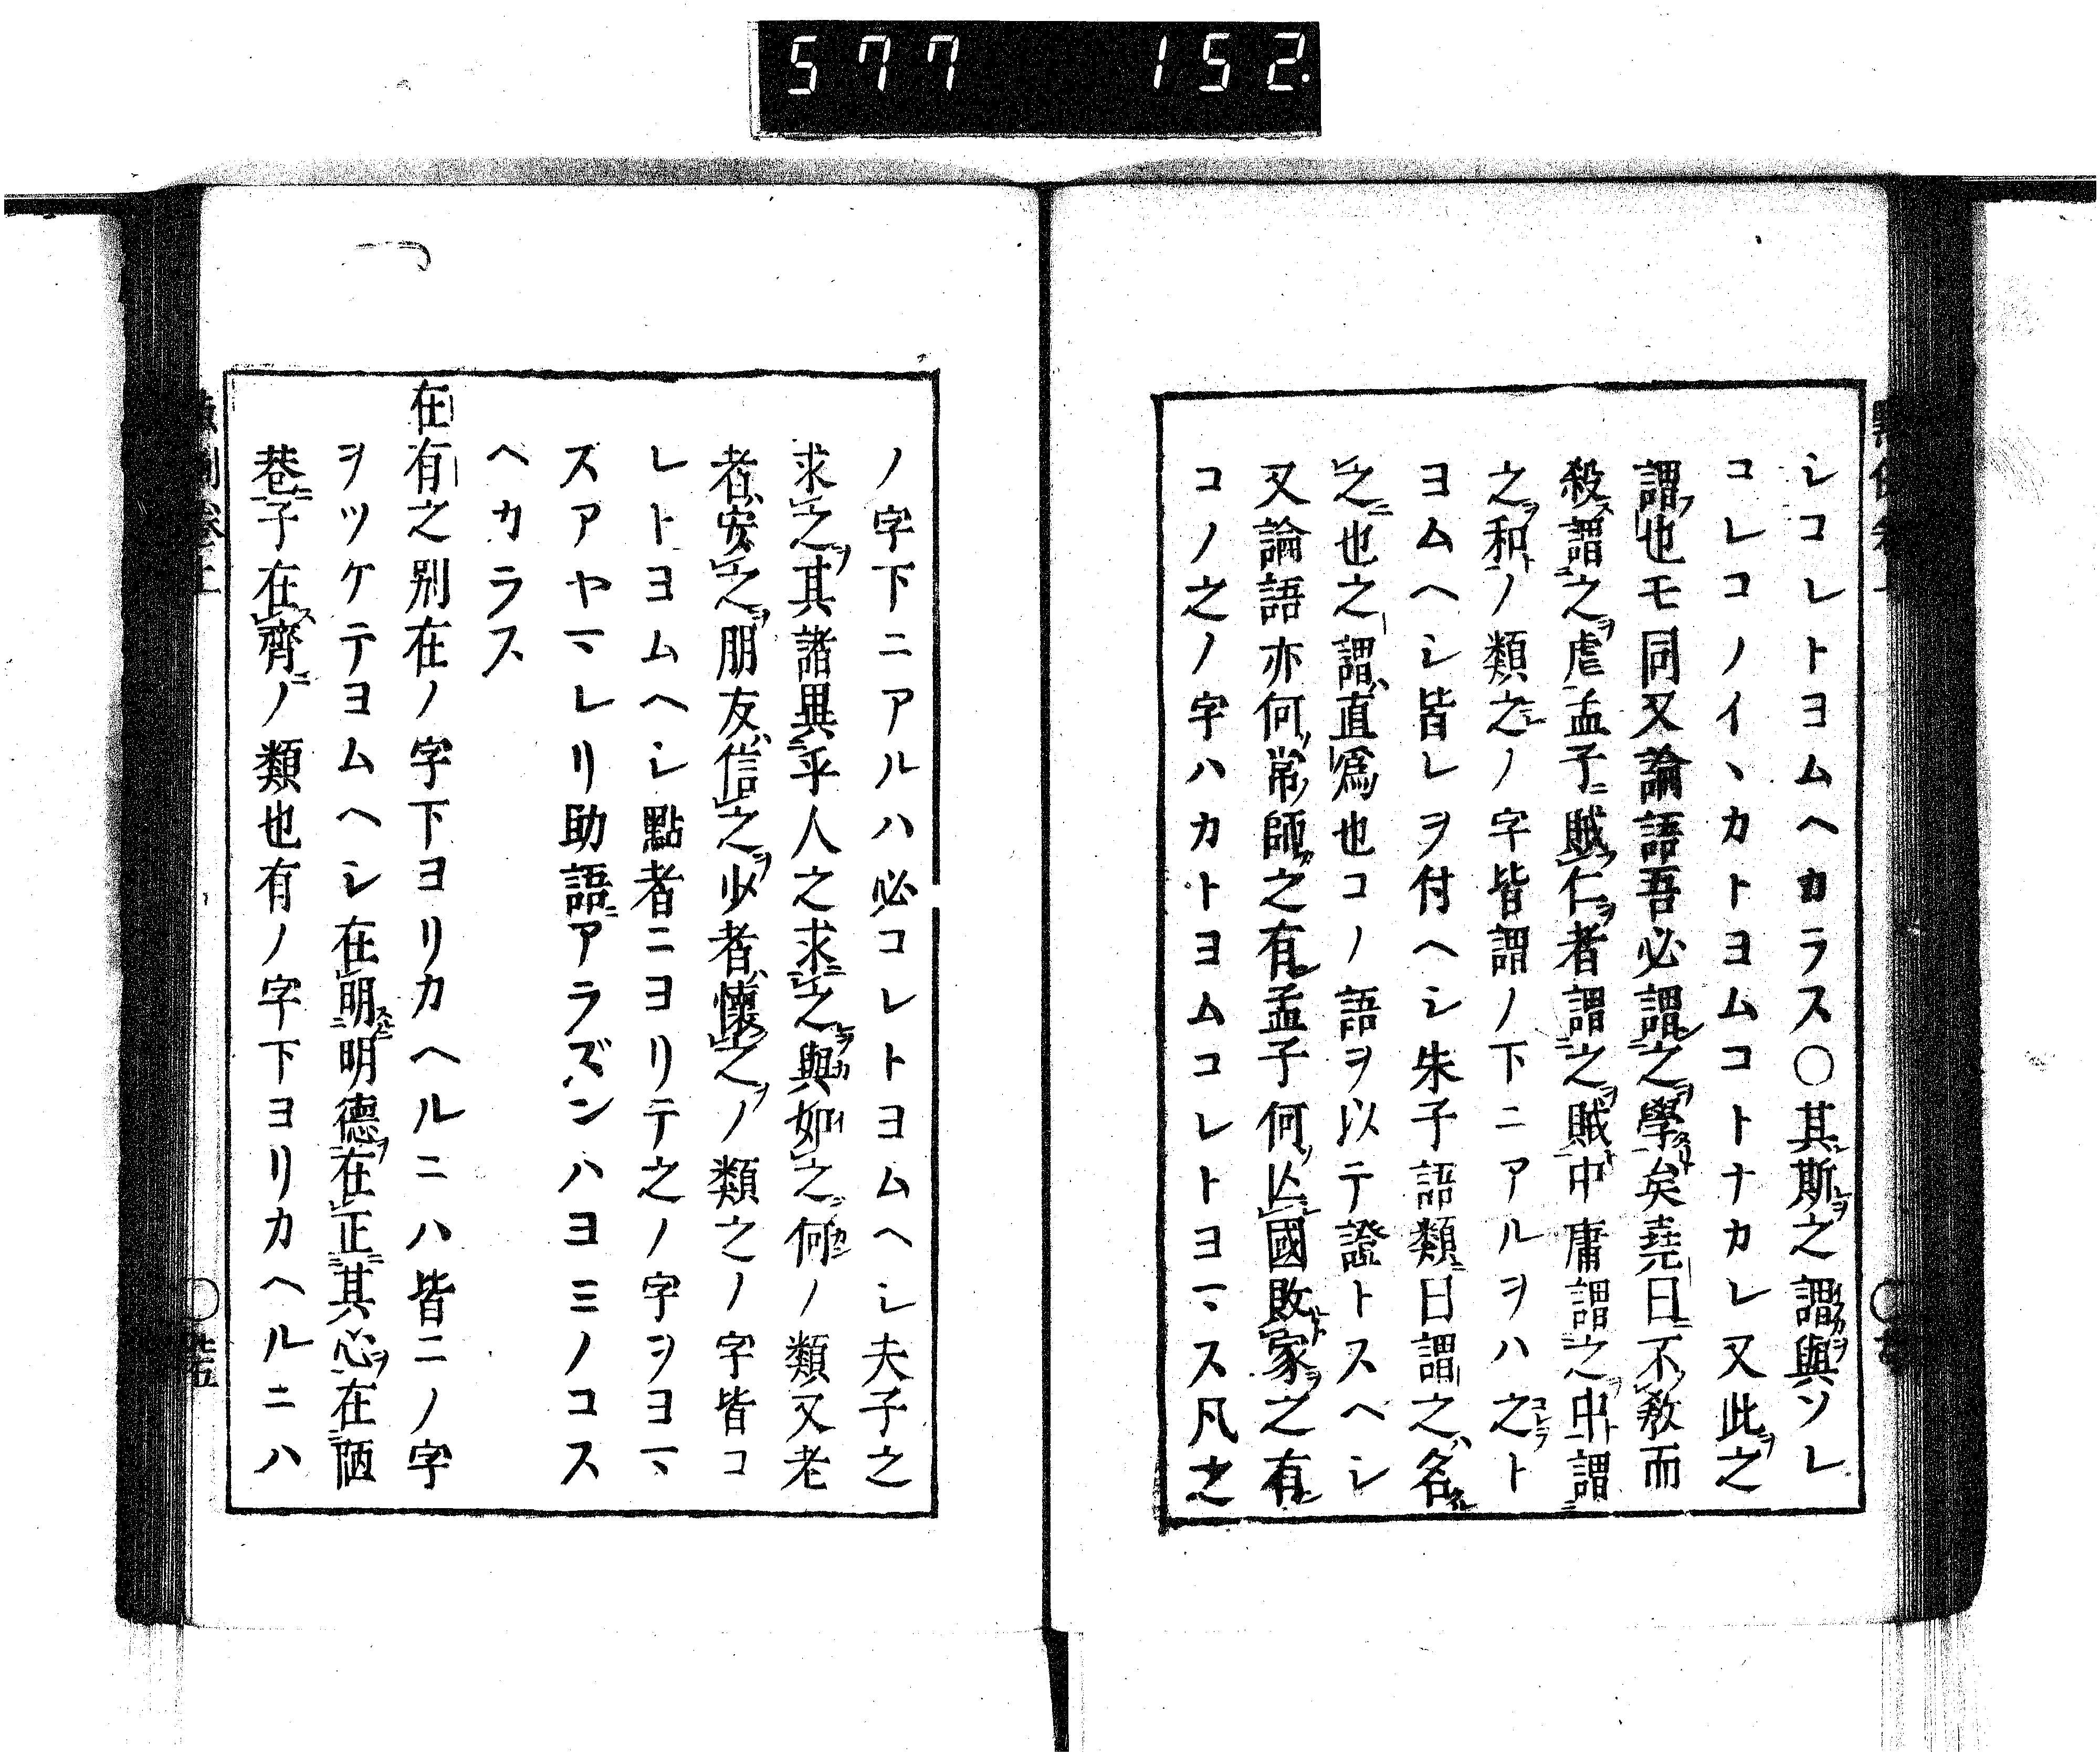 577 152.
シコレトヨムヘカラス○其斯之謂與ソレ
コレコノイヽカトヨムコトナカレ又此之
謂也モ同又論語吾必謂之學矣堯曰不敎而
殺謂之虐孟子賊仁者謂之賊中庸謂之中謂
之和ノ類之ノ字皆謂ノ下ニアルヲハ之ト
ヨムヘシ皆レヲ付ヘシ朱子語類曰謂之名
之也之謂直爲也コノ語ヲ以テ證トスヘシ
又論語亦何常師之有孟子何亡國敗家之有
コノ之ノ字ハカトヨムコレトヨマス凡之
ノ字下ニアルハ必コレトヨムヘシ夫子之
求之其諸異乎人之求之與如之何ノ類又老
者安之朋友信之少者懷之ノ類之ノ字皆コ
レトヨムヘシ點者ニヨリテ之ノ字ヲヨマ
スアヤマレリ助語アラズンハヨミノコス
ヘカラス
在有之別在ノ字下ヨリカヘルニハ皆ニノ字
ヲツケテヨムヘシ在明明德在正其心在陋
巷子在齊ノ類也有ノ字下ヨリカヘルニハ